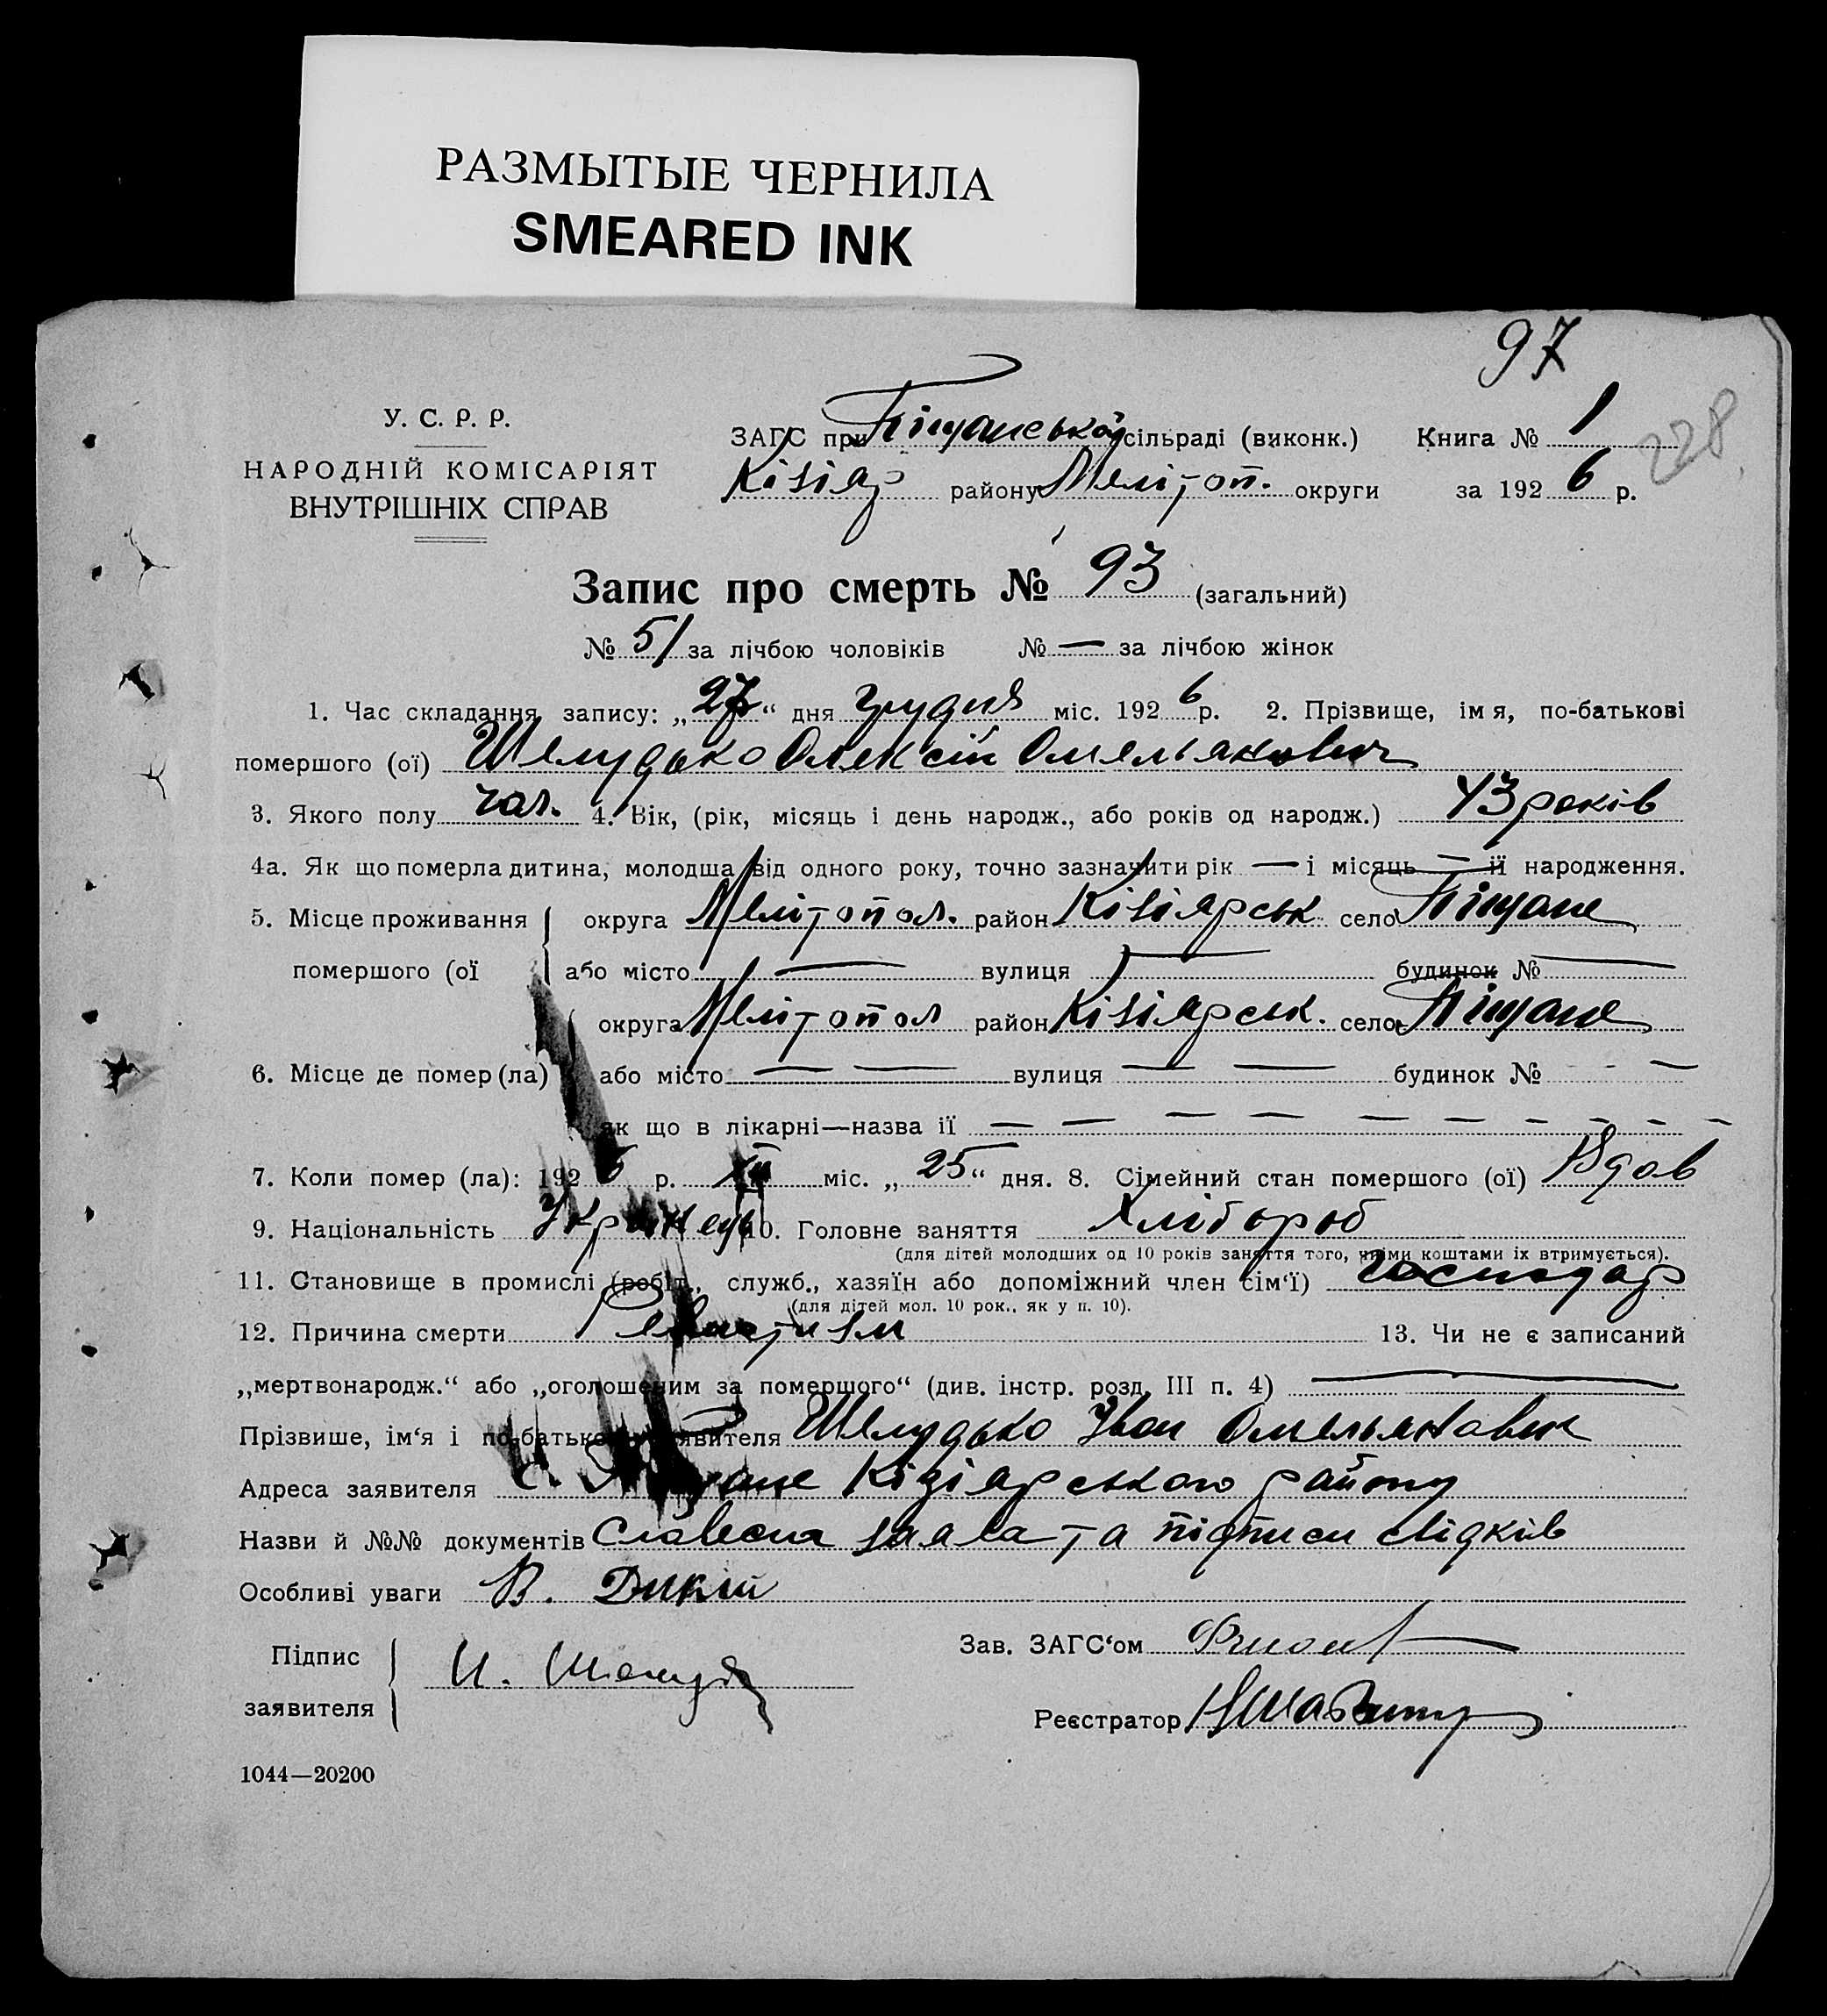 РАЗМЫТЫЕ ЧЕРНИЛА
SMEARED INK
97
228
У. С. Р. Р.
НАРОДНІЙ КОМІСАРІЯТ
ВНУТРІШНІХ СПРАВ
ЗАГС при Піщанській сільраді (виконк.) Книга № 1
Кізіяр району Мелітоп. округи за 1926 р.
Запис про смерть № 93 (загальний)
№ 51 за лічбою чоловіків № — за лічбою жінок
1. Час складання запису: „27“ дня грудня міс. 1926 р. 2. Прізвище, імя, по-батькові
помершого (ої) Шелудько Олексій Омельянович
3. Якого полу чол. 4. Вік, (рік, місяць і день народж., або років од народж.) 43 років
4а. Як що померла дитина, молодша від одного року, точно зазначити рік — і місяць — її народження.
5. Місце проживання округа Мелітопол. район Кізіярськ. село Піщане
помершого (ої або місто — вулиця — будинок № —
округа Мелітопол район Кізіярськ. село Піщане
6. Місце де помер (ла) або місто — — вулиця — — будинок № —
як що в лікарні—назва ії — — — — — — — — — —
7. Коли помер (ла): 1926 р. XII міс. „25“ дня. 8. Сімейний стан помершого (ої) Вдов
9. Національність Українець 10. Головне заняття Хлібороб
(для дітей молодших од 10 років заняття того, чиїми коштами іх втримується).
11. Становище в промислі (робіт., служб., хазяїн або допоміжний член сім‘ї) господар
(для дітей мол. 10 рок., як у п. 10).
12. Причина смерти Ревматизм 13. Чи не є записаний
„мертвонародж.“ або „оголошеним за помершого“ (див. інстр. розд. III п. 4) —
Прізвише, ім‘я і по-батькові заявителя Шелудько Іван Омельянович
Адреса заявителя С. Піщане Кізіярського району
Назви й №№ документів Словесна заява та підписи свідків
Особливі уваги В. Дикий
Підпис
заявителя
И. Шелудь
Зав. ЗАГС‘ом
Реєстратор
1044—20200